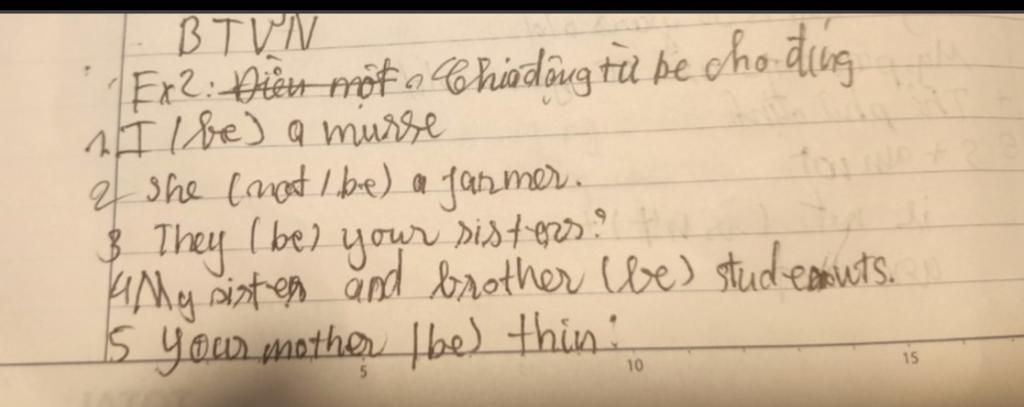 BTVN
Ex2: Điền một Chia động từ be cho đúng
1. I (be) a nurse
2 she (not / be) a farmer.
3 They (be) your sisters?
4 My sister and brother (be) students.
5 Your mother (be) thin.
5 10 15